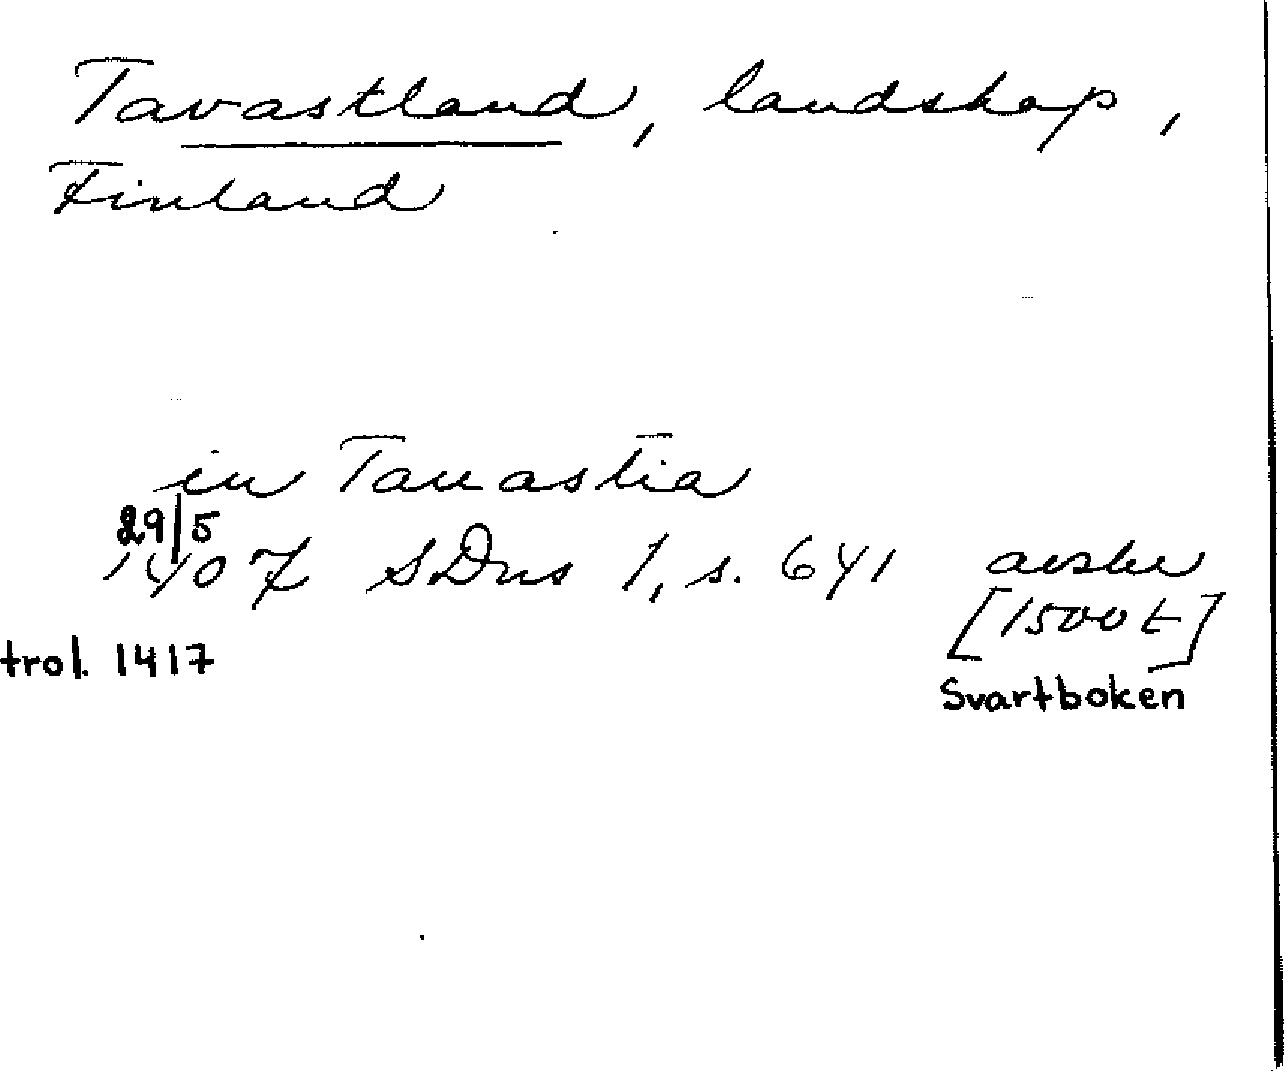 Tavastland, landskap,
Finland
in Tauastia
29/5
1407 SDns 1, s. 641 avskr
[1500t]
trol. 1417
Svartboken